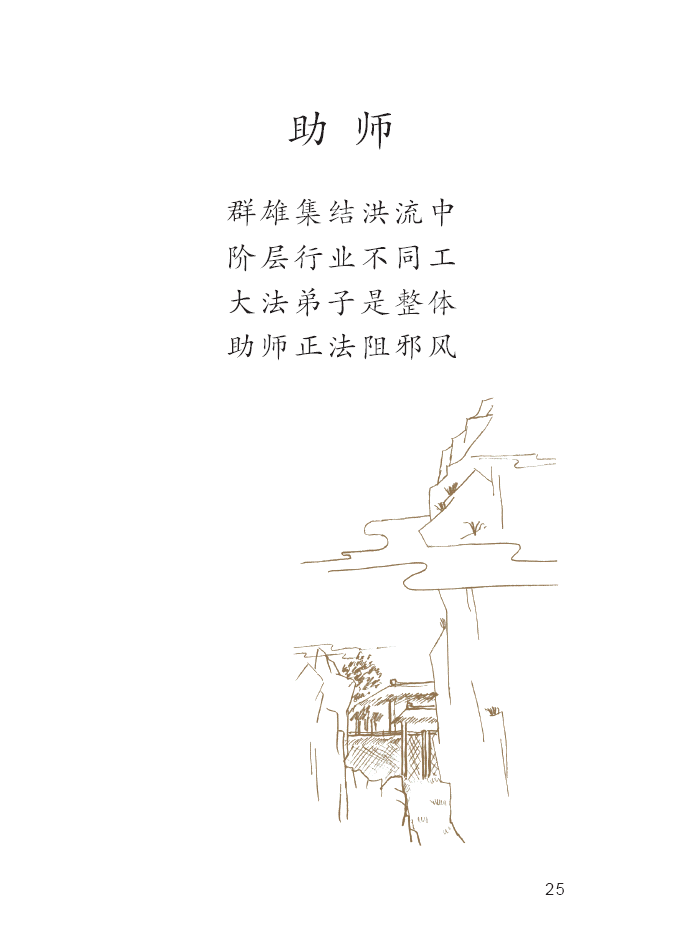 助 师
群雄集结洪流中
阶层行业不同工
大法弟子是整体
助师正法阻邪风
25